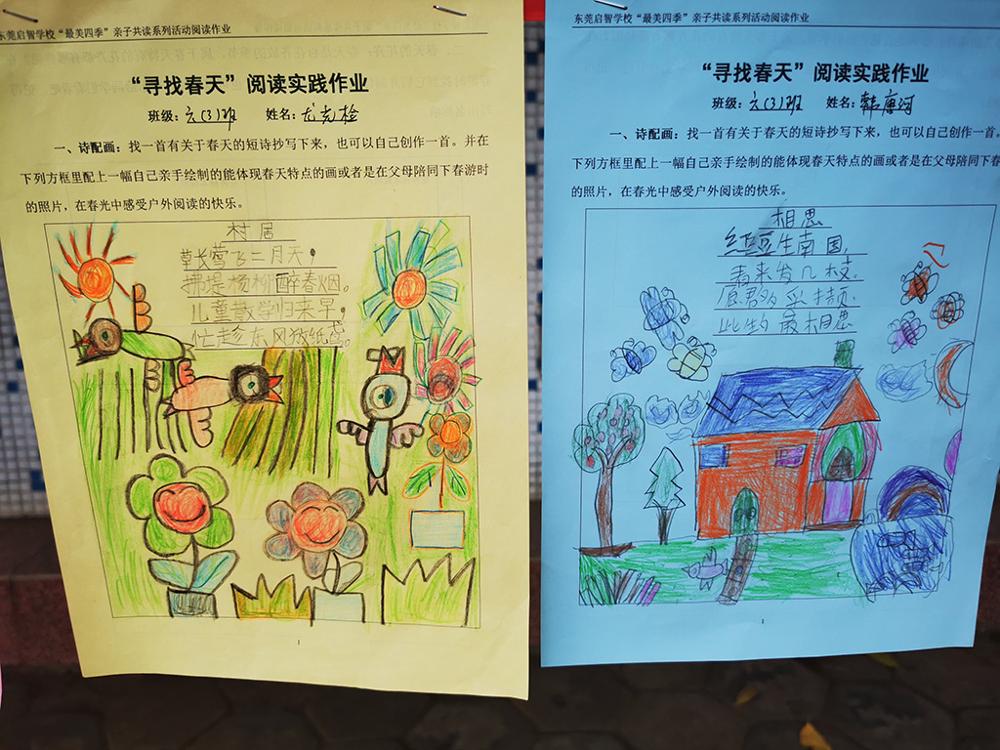 东莞启智学校“最美四季”亲子共读系列活动阅读作业
“寻找春天”阅读实践作业
班级:六(3)班 姓名:尤克检
一、诗配画:找一首有关于春天的短诗抄写下来,也可以自己创作一首。并在
下列方框里配上一幅自己亲手绘制的能体现春天特点的画或者是在父母陪同下春游时
的照片,在春光中感受户外阅读的快乐。
村居
草长莺飞二月天,
拂堤杨柳醉春烟。
儿童散学归来早,
忙趁东风放纸鸢。
1
东莞启智学校“最美四季”亲子共读系列活动阅读作业
“寻找春天”阅读实践作业
班级:六(3)班 姓名:韩唐河
一、诗配画:找一首有关于春天的短诗抄写下来,也可以自己创作一首。
下列方框里配上一幅自己亲手绘制的能体现春天特点的画或者是在父母陪同下春
的照片,在春光中感受户外阅读的快乐。
相思
红豆生南国,
春来发几枝。
愿君多采撷,
此物最相思
1